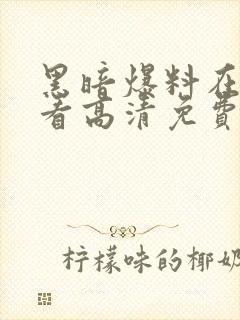 黑暗爆料在
看高清免費
柠檬味的椰奶